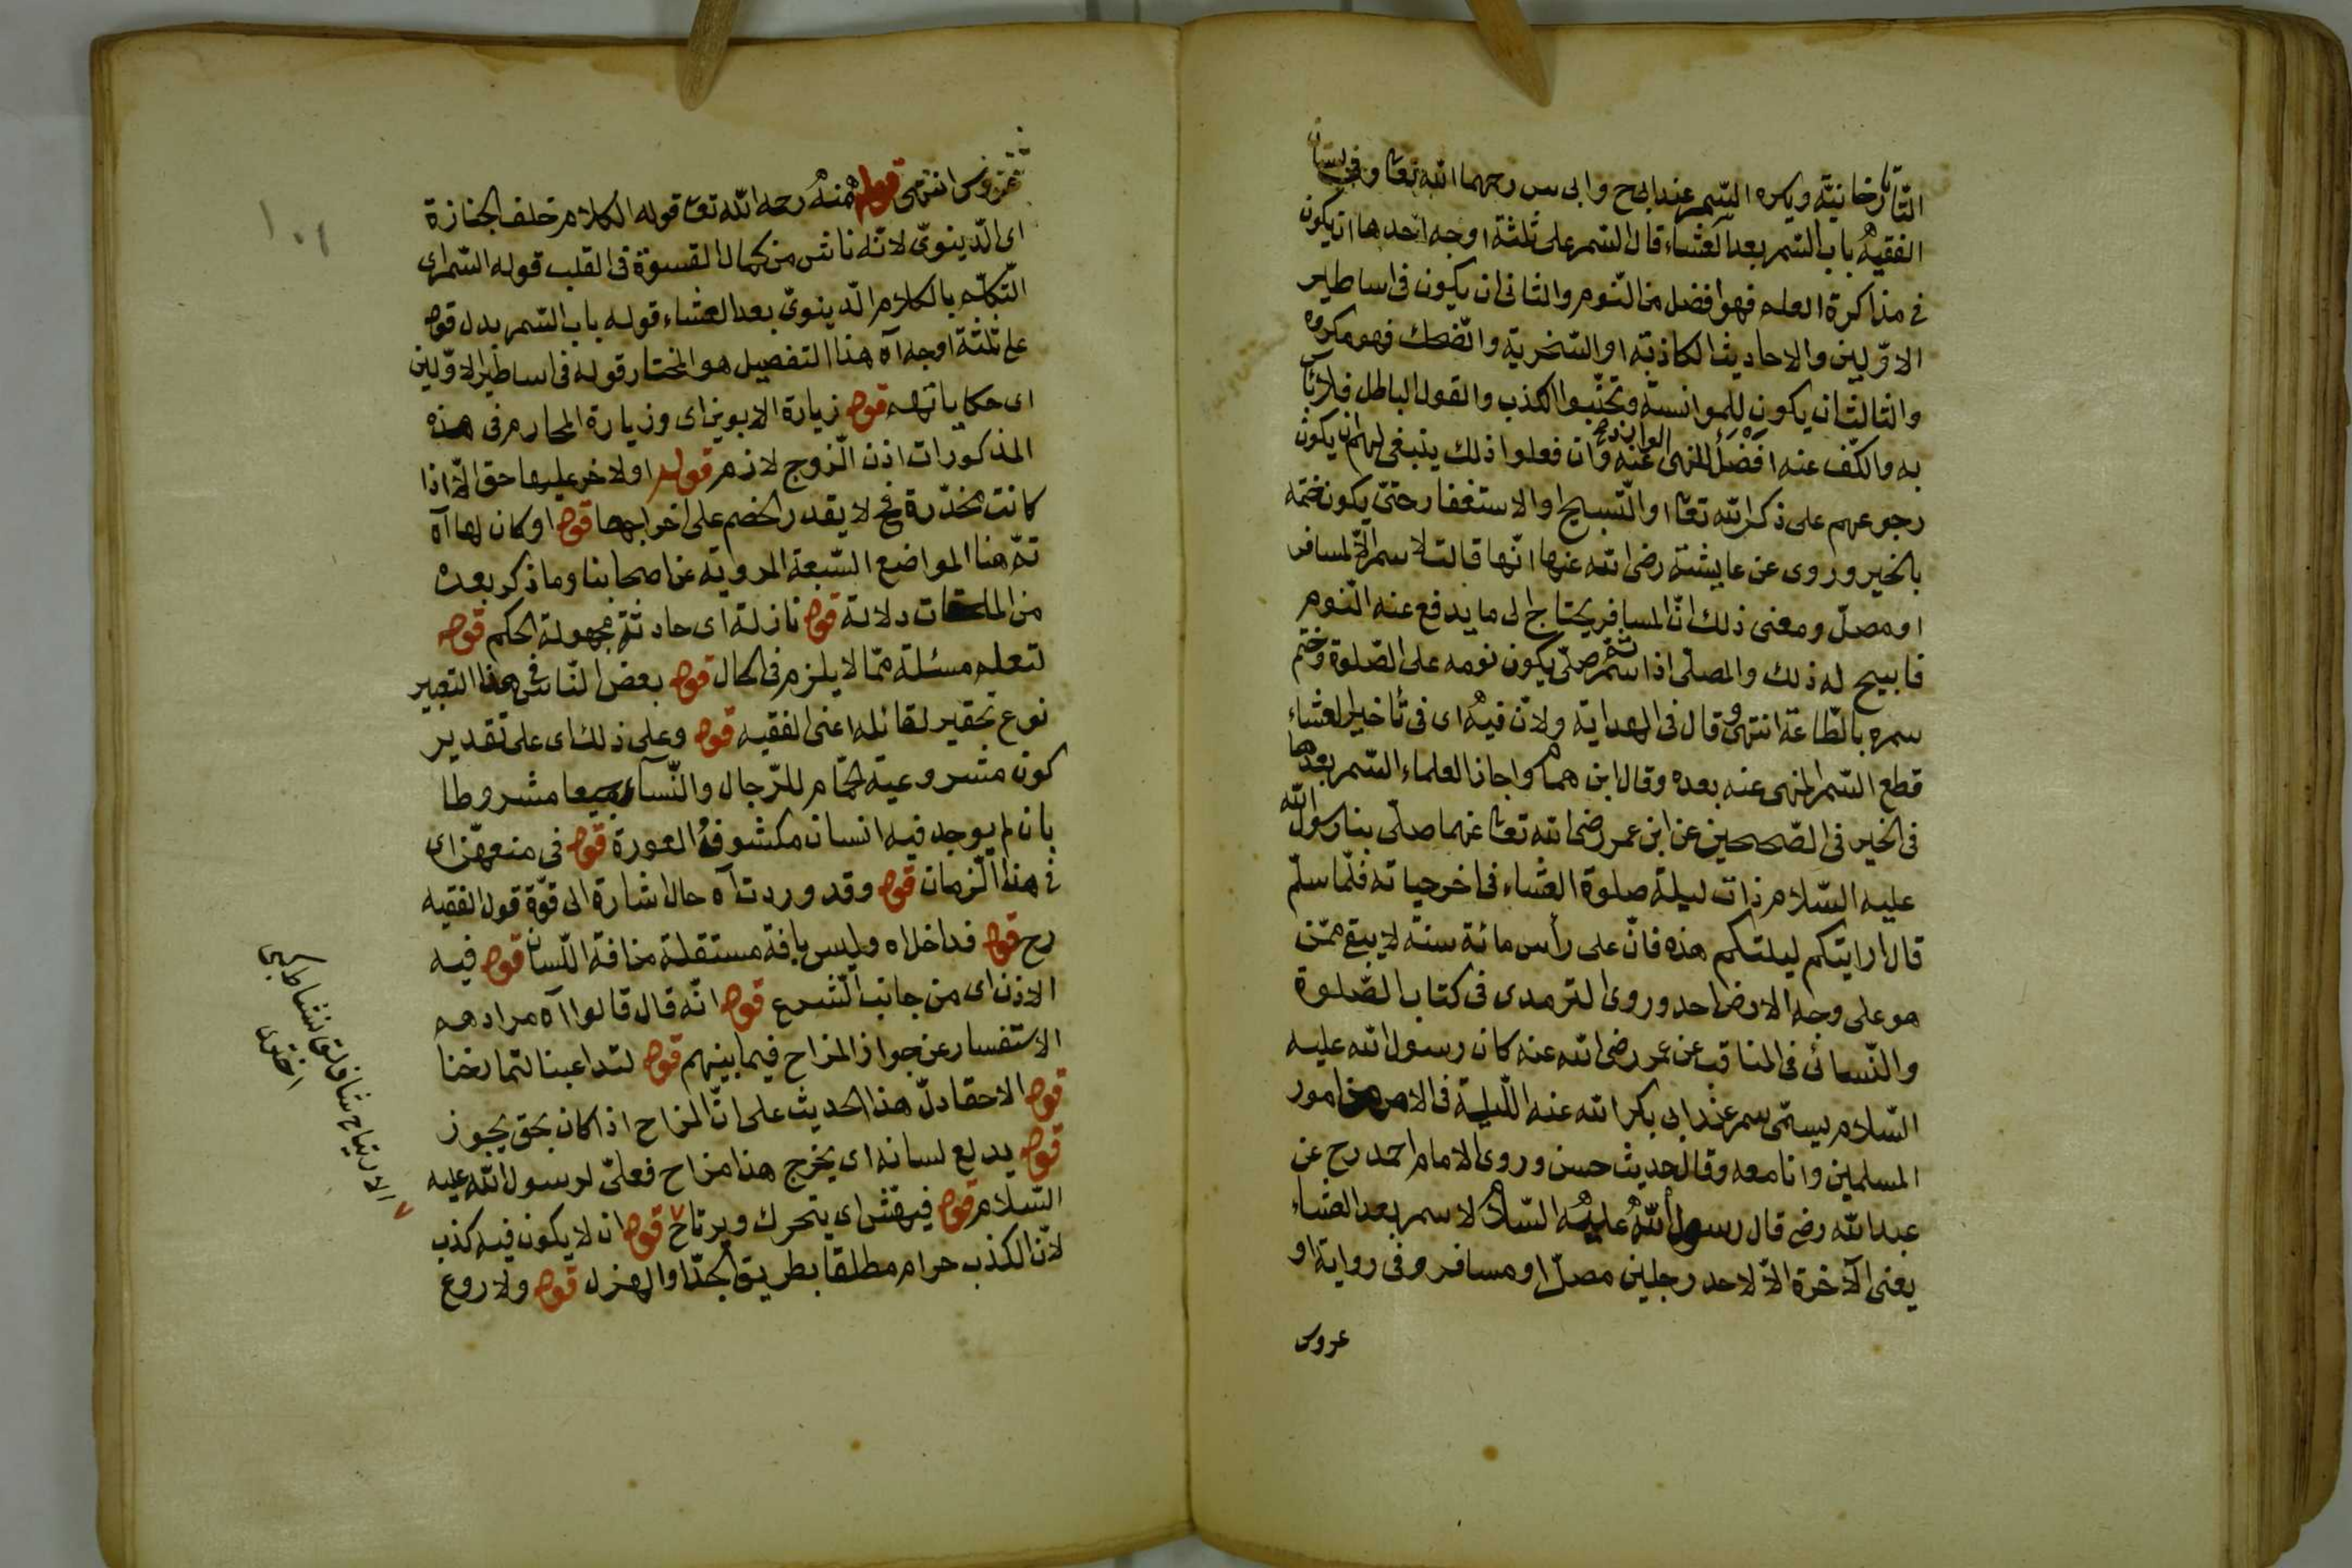 التاتارخانية ويكره السمر عند ابى ح وابى س رحهما الله تعا وفى بستان
الفقيه باب السمر بعد العشاء قال السمر على ثلثة اوجه احدها ان يكون
فى مذاكرة العلم فهو افضل من النوم والثانى ان يكون فى اساطير
الاولين والاحاديث الكاذبة او السخرية والضحك فهو مكروه
والثالث ان يكون للموانسة وتجنبوا الكذب والقول الباطل فلا بأس
به والكف عنه افضل للنهى الوارد عنه وان فعلوا ذلك ينبغى لهم ان يكون
رجوعهم على ذكر الله تعا او التسبيح او الاستغفار حتى يكون ختمه
بالخير وروى عن عايشة رضى الله عنها انها قالت لا سمر الا لمسافر
او مصل ومعنى ذلك ان المسافر يحتاج الى ما يدفع عنه النوم
فابيح له ذلك والمصلى اذا سمر ثم صلى يكون نومه على الصلوة وختم
سمره بالطاعة انتهى وقال فى الهداية ولان فيه اى فى تأخير العشاء
قطع السمر المنهى عنه بعده وقال ابن همام واجاز العلماء السمر بعدها
فى الخير فى الصحيحين عن ابن عمر رضى الله تعا عنهما صلى بنا رسول الله
عليه السلام ذات ليلة صلوة العشاء فى اخر حياته فلما سلم
قال ارايتكم ليلتكم هذه فان على رأس مائة سنة لا يبقى ممن
هو على وجه الارض احد وروى الترمدى فى كتاب الصلوة
والنسائى فى المناقب عن عمر رضى الله عنه كان رسول الله عليه
السلام يسمى سمر عند ابى بكر الله عنه الليلة فى الامر من امور
المسلمين وانا معه وقال حديث حسن وروى الامام احمد رح عن
عبد الله رض قال رسول الله عليه السلام لا سمر بعد العشاء
يعنى الآخرة الا لاحد رجلين مصل او مسافر وفى رواية او
عروس
عروس انتهى قوله منه رحمه الله تعا قوله الكلام خلف الجنازة
اى الدينوى لانه ناش من كمال القسوة فى القلب قوله السمر اى
التكلم بالكلام الدينوى بعد العشاء قوله باب السمر بدل قوله
على ثلثة اوجه آه هذا التفصيل هو المختار قوله فى اساطير الاولين
اى حكاياتهم قوله زيارة الابوين اى وزيارة المحارم فى هذه
المذكورات اذن الزوج لازم قوله او لاخر عليها حق الا اذا
كانت مخدرة فح لا يقدر الخصم على اخراجها قوله او كان لها آه
تم هنا المواضع السبعة المروية عن اصحابنا وما ذكر بعده
من الملحقات دلالة قوله نازلة اى حادثة مجهولة الحكم قوله
لتعلم مسئلة مما لا يلزم فى الحال قوله بعض الناس فى هذا التعبير
نوع تحقير لقائله اعنى الفقيه قوله وعلى ذلك اى على تقدير
كون مشروعية الحمام للرجال والنسآء جميعا مشروطا
بان لم يوجد فيه انسان مكشوف العورة قوله فى منعهن اى
فى هذا الزمان قوله وقد وردت آه حال اشارة الى قوة قول الفقيه
رح قوله فداخلاه وليس بافة مستقلة من افة اللسان قوله فيه
الاذن اى من جانب الشرع قوله انه قال قالوا آه مرادهم
الاستفسار عن جواز المزاح فيما بينهم قوله لتداعبنا لتمازحنا
قوله الا حقا دل هذا الحديث على ان المزاح اذا كان بحق يجوز
قوله يدلع لسانه اى يخرج هذا مزاح فعلى لرسول الله عليه
السلام قوله فيهش اى يتحرك ويرتاح ٧ قوله ان لا يكون فيه كذب
لان الكذب حرام مطلقا بطريق الجد او الهزل قوله ولا روع
٧ الارتياح
اخترى